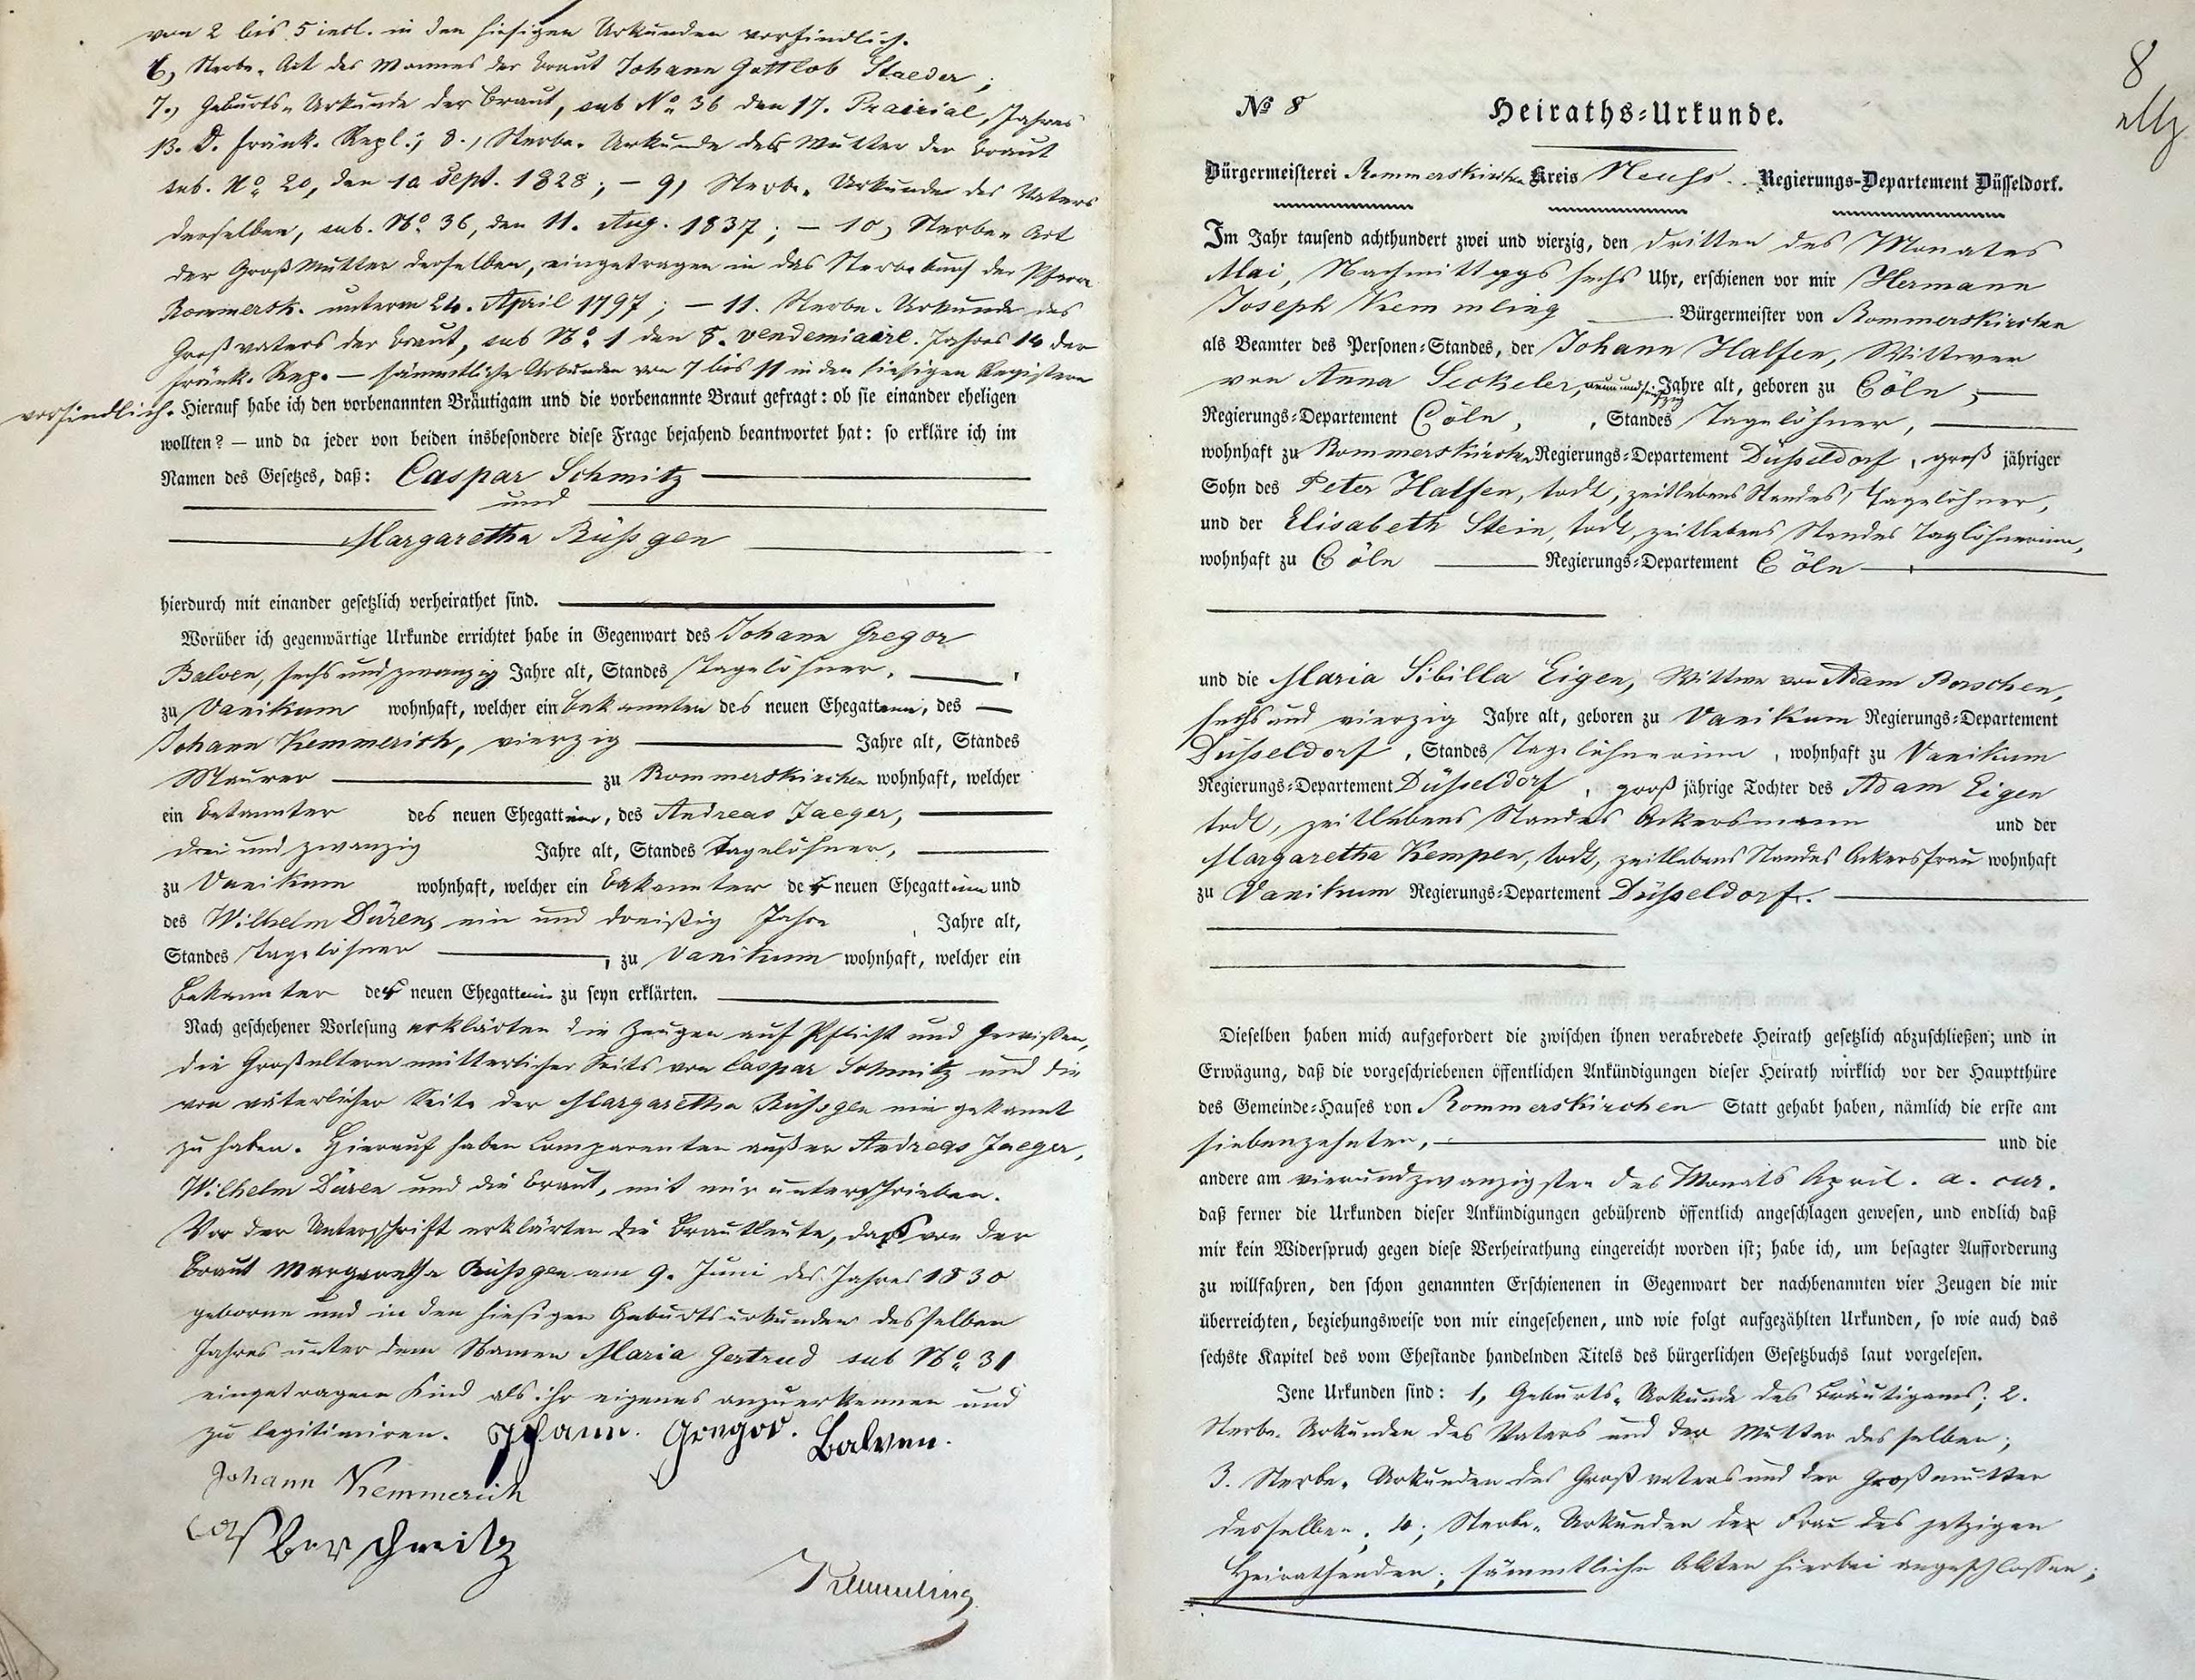 von 2 bis 5 incl. in den hiesigen Urkunden vorfindlich.
6, Sterbe-Act des Mannes der Braut Johann Gottlob Staeder;
7., Geburts-Urkunde der Braut, sub No. 36 den 17. Prairial, Jahres
13. d. fränk. Repl.; 8., Sterbe-Urkunde der Mutter der Braut
sub. No. 20, den 10 Sept. 1828; – 9, Sterbe-Urkunde des Vaters
derselben, sub. No. 36, den 11. Aug. 1837; – 10, Sterbe-Act
der Großmutter derselben, eingetragen in das Sterbebuch der Pfarre
Rommersk. unterm 24. April 1797; – 11. Sterbe-Urkunde des
Großvaters der Braut, sub No. 1 den 8. vendemiaire. Jahres 14 der
fränk. Rep. – sämmtliche Urkunden von 7 bis 11 in den hiesigen Registern
vorfindlich. Hierauf habe ich den vorbenannten Bräutigam und die vorbenannte Braut gefragt: ob sie einander ehelichen
wollten? — und da jeder von beiden insbesondere diese Frage bejahend beantwortet hat: so erkläre ich im
Namen des Gesetzes, daß: Caspar Schmitz
und
Margaretha Büßgen
hierdurch mit einander gesetzlich verheirathet sind.
Worüber ich gegenwärtige Urkunde errichtet habe in Gegenwart des Johann Gregor
Balven, sechs und zwanzig Jahre alt, Standes Tagelöhner,
zu Vanikum wohnhaft, welcher ein bekannter des neuen Ehegatten, des
Johann Kemmerich, vierzig Jahre alt, Standes
Maurer zu Rommerskirchen wohnhaft, welcher
ein bekannter des neuen Ehegatten, des Andreas Jaeger,
drei und zwanzig Jahre alt, Standes Tagelöhner,
zu Vanikum wohnhaft, welcher ein bekannter der neuen Ehegattinn und
des Wilhelm Düren, ein und dreißig Jahre Jahre alt,
Standes Tagelöhner, zu Vanikum wohnhaft, welcher ein
bekannter der neuen Ehegattinn zu seyn erklärten.
Nach geschehener Vorlesung erklärten die Zeugen auf Pflicht und Gewissen,
die Großeltern mütterlicher Seits von Caspar Schmitz und die
von väterlicher Seite der Margaretha Büßgen nie gekannt
zu haben. Hierauf haben Comparenten außer Andreas Jaeger,
Wilhelm Düren und die Braut, mit mir unterschrieben.
Vor der Unterschrift erklärten die Brautleute, daß von der
Braut Margaretha Büßgen am 9. Juni des Jahres 1830
geborne und in den hiesigen Geburtsurkunden desselben
Jahres unter dem Namen Maria Gertrud sub No. 31
eingetragene Kind als ihr eigenes anzuerkennen und
zu legitimiren. Johann. Gregor. Balven.
Johann Kemmerich
Casper schmitz
Kemmling
8
No. 8 Heiraths-Urkunde.
Bürgermeisterei Rommerskirchen Kreis Neuss. Regierungs-Departement Düsseldorf.
Im Jahr tausend achthundert zwei und vierzig, den dritten des Monates
Mai, Nachmittags sechs Uhr, erschienen vor mir Hermann
Joseph Kemmling Bürgermeister von Rommerskirchen
als Beamter des Personen-Standes, der Johann Halfen, Wittwer
von Anna Seckeler, neun und fünfzig Jahre alt, geboren zu Cöln,
Regierungs-Departement Cöln, Standes Tagelöhner,
wohnhaft zu Rommerskirchen Regierungs-Departement Düsseldorf, groß jähriger
Sohn des Peter Halfen, todt, zeitlebens Standes Tagelöhner,
und der Elisabeth Stein, todt, zeitlebens Standes Taglöhnerinn,
wohnhaft zu Cöln Regierungs-Departement Cöln
und die Maria Sibilla Eigen, Wittwe von Adam Borschen,
sechs und vierzig Jahre alt, geboren zu Vanikum Regierungs-Departement
Düsseldorf, Standes Tagelöhnerinn, wohnhaft zu Vanikum
Regierungs-Departement Düsseldorf, groß jährige Tochter des Adam Eigen
todt, zeitlebens Standes Ackersmann und der
Margaretha Kempen, todt, zeitlebens Standes Ackersfrau wohnhaft
zu Vanikum Regierungs-Departement Düsseldorf.
Dieselben haben mich aufgefordert die zwischen ihnen verabredete Heirath gesetzlich abzuschließen; und in
Erwägung, daß die vorgeschriebenen öffentlichen Ankündigungen dieser Heirath wirklich vor der Hauptthüre
des Gemeinde-Hauses von Rommerskirchen Statt gehabt haben, nämlich die erste am
siebenzehnten, und die
andere am vierundzwanzigsten des Monats April. a. cur.
daß ferner die Urkunden dieser Ankündigungen gebührend öffentlich angeschlagen gewesen, und endlich daß
mir kein Widerspruch gegen diese Verheirathung eingereicht worden ist; habe ich, um besagter Aufforderung
zu willfahren, den schon genannten Erschienenen in Gegenwart der nachbenannten vier Zeugen die mir
überreichten, beziehungsweise von mir eingesehenen, und wie folgt aufgezählten Urkunden, so wie auch das
sechste Kapitel des vom Ehestande handelnden Titels des bürgerlichen Gesetzbuchs laut vorgelesen.
Jene Urkunden sind: 1, Geburts-Urkunde des Bräutigams; 2.
Sterbe-Urkunden des Vaters und der Mutter desselben;
3. Sterbe-Urkunden des Großvaters und der Großmutter
desselben; 4; Sterbe-Urkunden der Frau des jetzigen
Heirathenden; sämmtliche Akten hierbei angeschlossen;